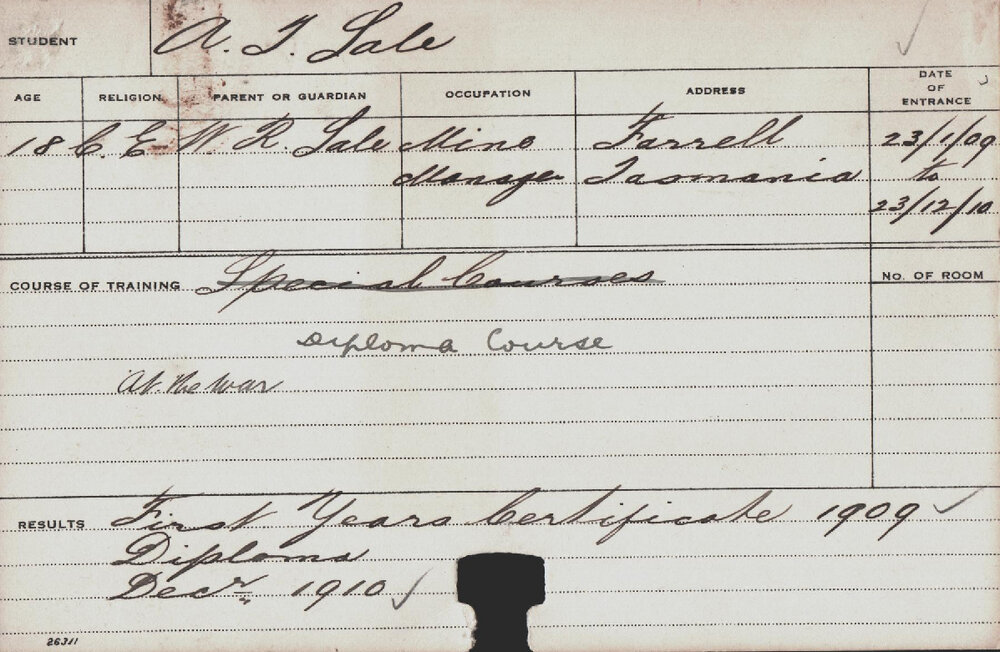 STUDENT A. T. Sale
AGE RELIGION PARENT OR GUARDIAN OCCUPATION ADDRESS DATE OF ENTRANCE
18 C. E W. R. Sale Mine Farrell 23/1/09
Manager Tasmania to
23/12/10
COURSE OF TRAINING Special Courses No. OF ROOM
Diploma Course
At the War
RESULTS First Years Certificate 1909
Diploma
Decr. 1910
26311